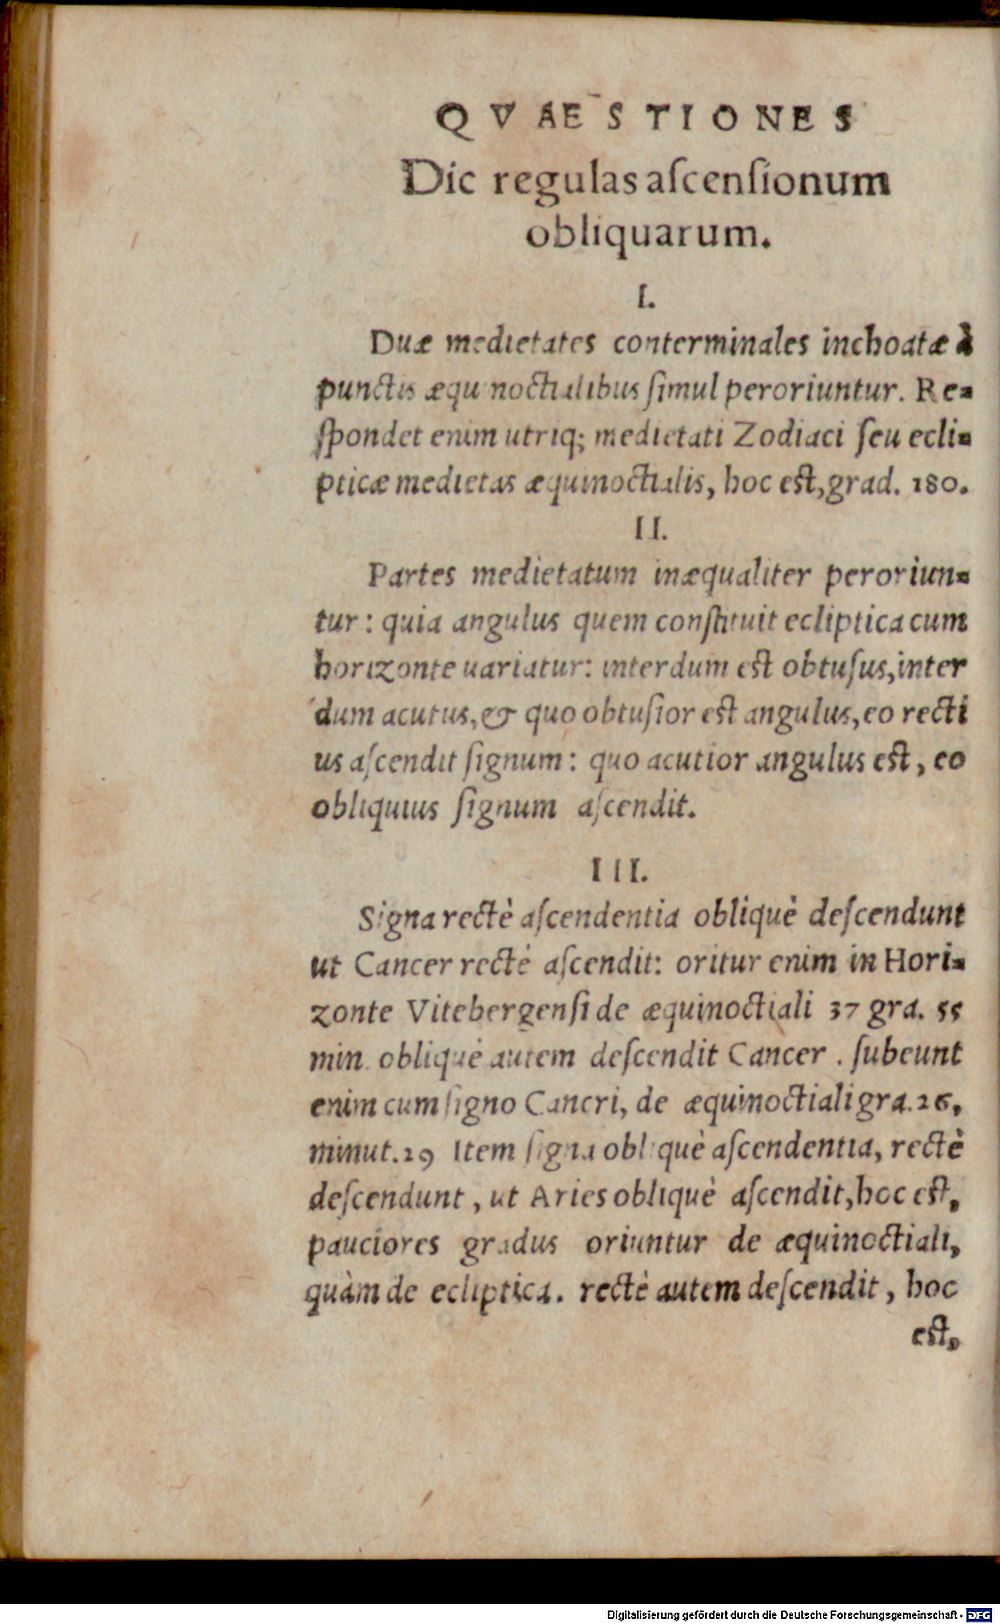 QVAESTIONES
Dic regulas aſcenſionum
obliquarum.
I.
Duæ medietates conterminales inchoatæ à
punctis æquinoctialibus ſimul peroriuntur. Re-
ſpondet enim utriq; medietati Zodiaci ſeu ecli-
pticæ medietas æquinoctialis, hoc eſt, grad. 180.
II.
Partes medietatum inæqualiter peroriun-
tur: quia angulus quem conſtituit ecliptica cum
horizonte uariatur: interdum eſt obtuſus, inter
dum acutus, & quo obtuſior eſt angulus, eo recti
us aſcendit ſignum: quo acutior angulus eſt, eo
obliquius ſignum aſcendit.
III.
Signa rectè aſcendentia obliquè deſcendunt
ut Cancer rectè aſcendit: oritur enim in Hori-
zonte Vitebergenſi de æquinoctiali 37 gra. 55
min. obliquè autem deſcendit Cancer. ſubeunt
enim cum ſigno Cancri, de æquinoctiali gra. 26,
minut. 29 Item ſigna obliquè aſcendentia, rectè
deſcendunt, ut Aries obliquè aſcendit, hoc eſt,
pauciores gradus oriuntur de æquinoctiali,
quàm de ecliptica. rectè autem deſcendit, hoc
eſt,
Digitalisierung gefördert durch die Deutsche Forschungsgemeinschaft - DFG